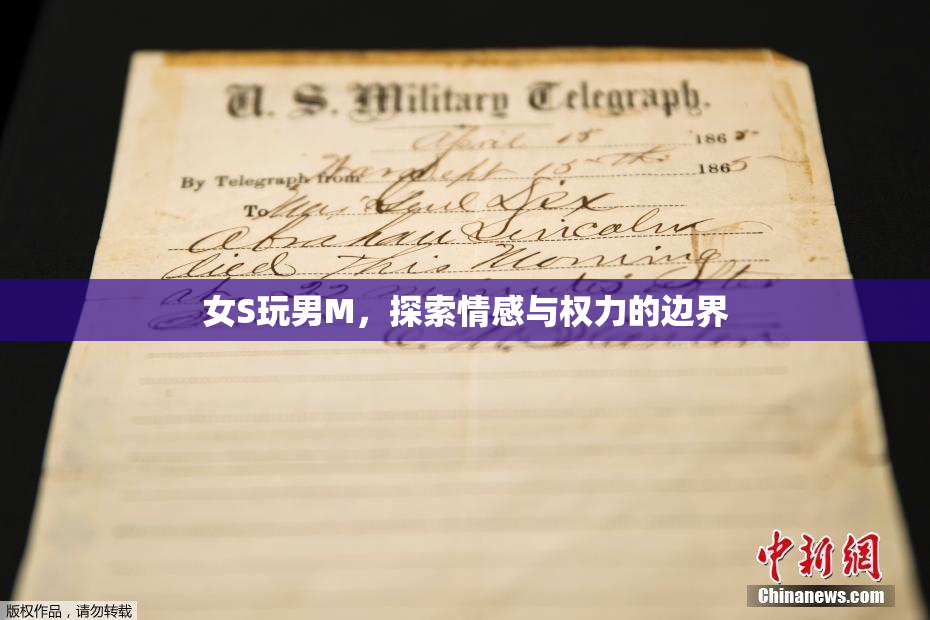 U. S. Military Telegraph.
April 15 1865
By Telegraph from War Dept 15th 1865
To Maj Genl Dix
Abraham Lincoln
died This Morning
at 22 minutes after
女S玩男M，探索情感与权力的边界
E. M. Stanton
中新網
Chinanews.com
版权作品，请勿转载